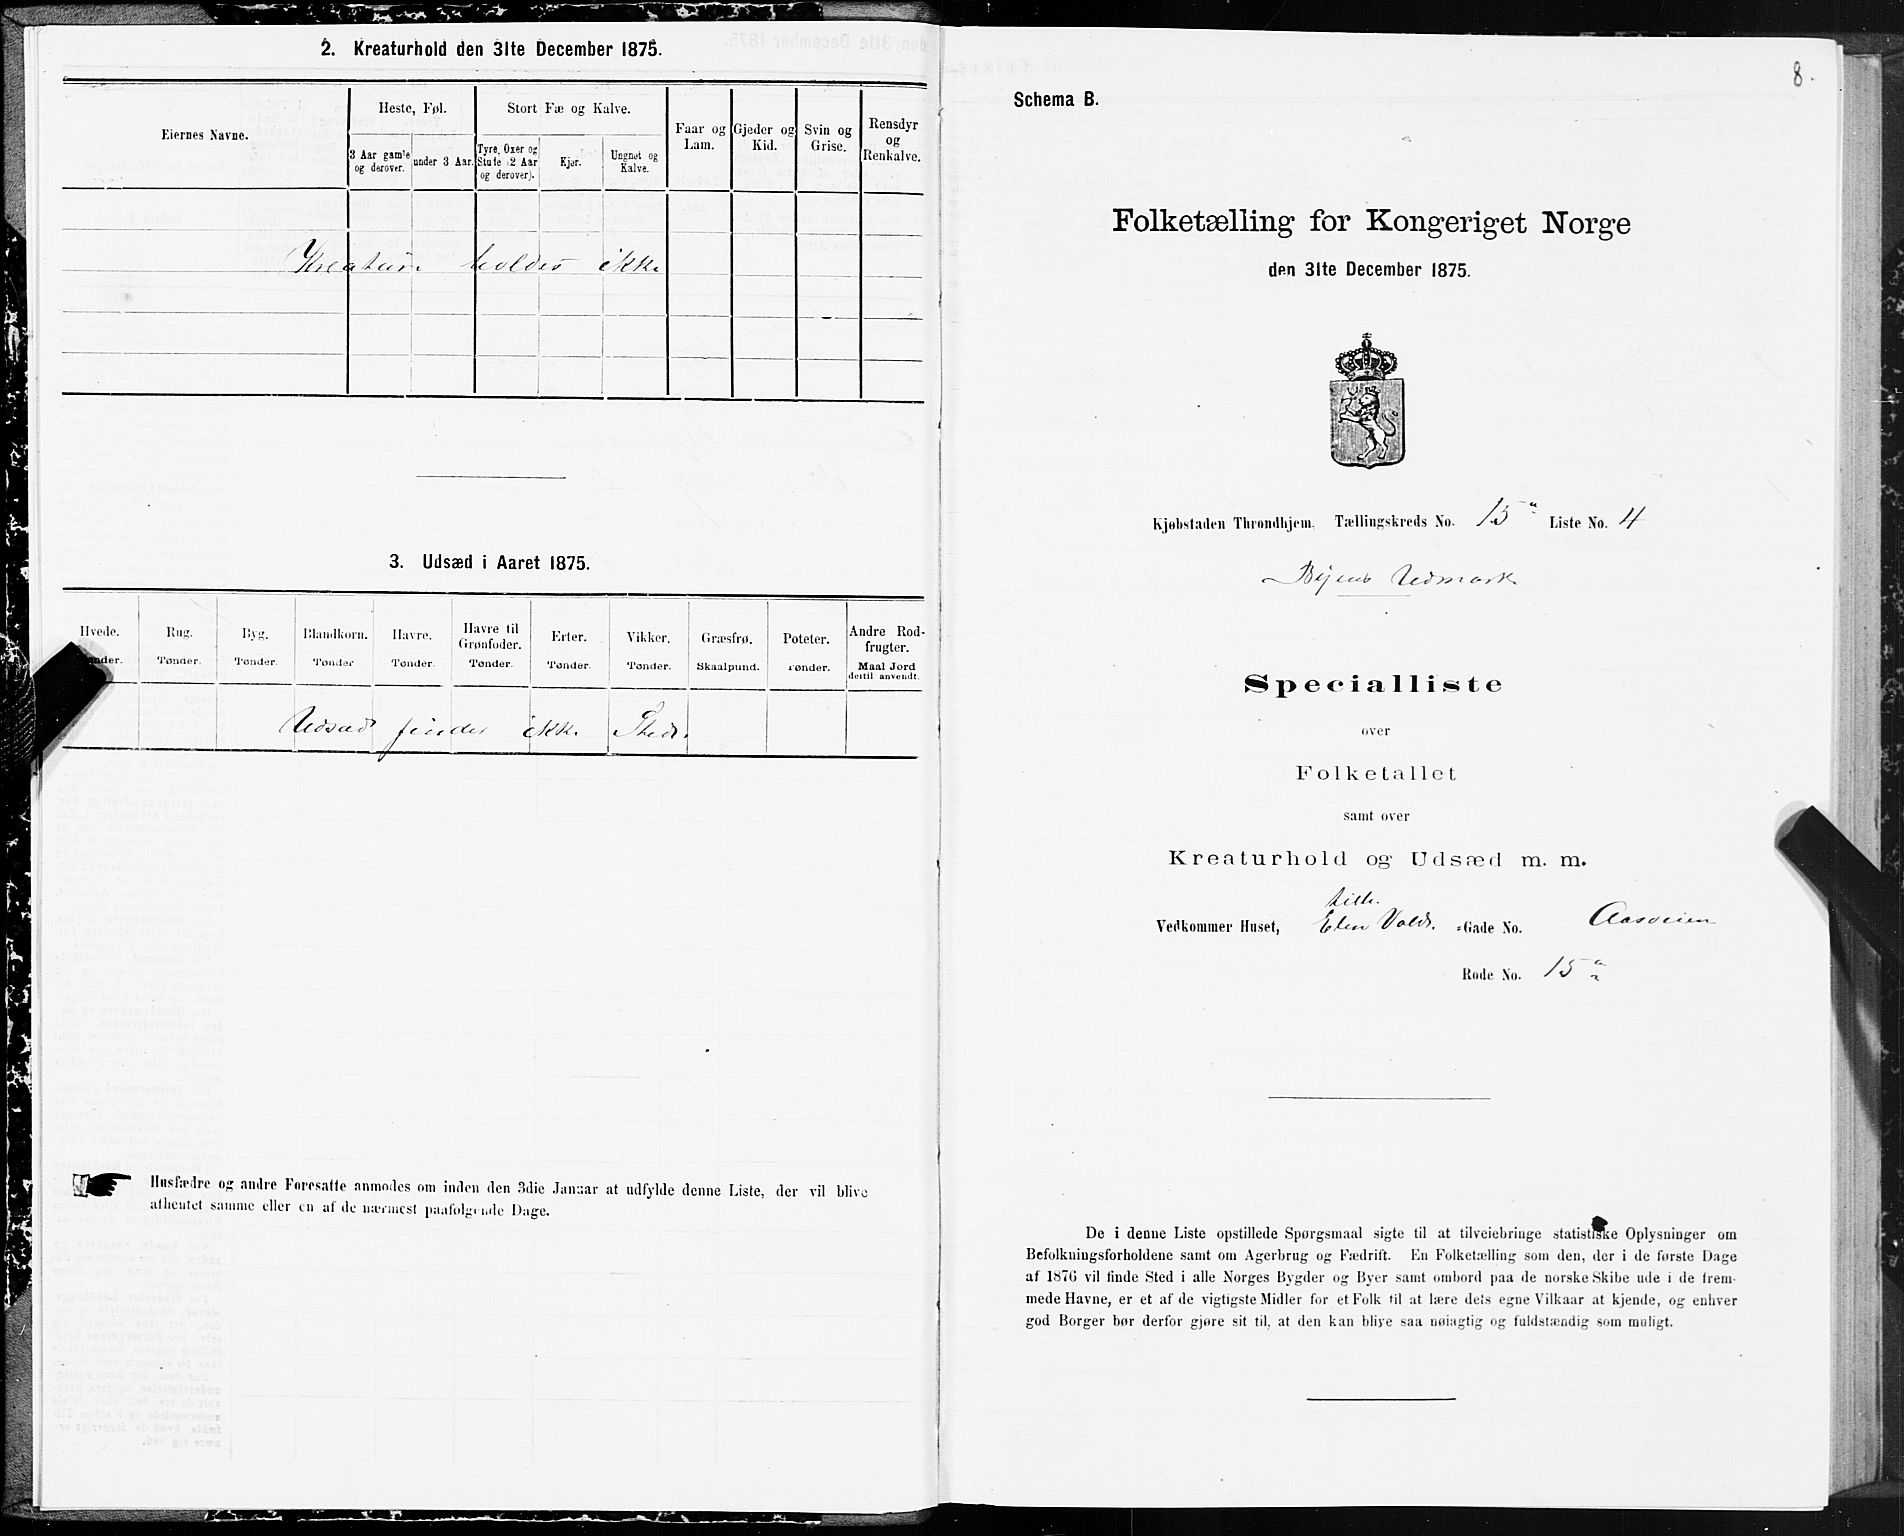 2. Kreaturhold den 31te December 1875.
Eiernes Navne.
Heste, Føl.
3 Aar gamle og derover.
under 3 Aar.
Stort Fæ og Kalve.
Tyre, Oxer og Stute (2 Aar og derover).
Kjør.
Ungnøt og Kalve.
Faar og Lam.
Gjeder og Kid.
Svin og Grise.
Rensdyr og Renkalve.
Kreature holdes ikke
3. Udsæd i Aaret 1875.
Hvede. Rug. Byg. Blandkorn. Havre. Havre til Grønfoder. Erter. Vikker. Græsfrø. Poteter. Andre Rodfrugter.
Tønder. Tønder. Tønder. Tønder Tønder. Tønder. Tønder. Tønder. Skaalpund. Tønder. Maal Jord dertil anvendt.
Udsæd finder ikke Sted.
Husfædre og andre Foresatte anmodes om inden den 3die Januar at udfylde denne Liste, der vil blive
afhentet samme eller en af de nærmest paafølgende Dage.
8.
Schema B.
Folketælling for Kongeriget Norge
den 31te December 1875.
Kjøbstaden Throndhjem, Tællingskreds No. 15a Liste No. 4
Byens Udmark
Specialliste
over
Folketallet
samt over
Kreaturhold og Udsæd m. m.
lille
Vedkommer Huset, Vold. -Gade No. Aasveien
Rode No. 15a
De i denne Liste opstillede Spørgsmaal sigte til at tilveiebringe statistiske Oplysninger om
Befolkningsforholdene samt om Agerbrug og Fædrift. En Folketælling som den, der i de første Dage
af 1876 vil finde Sted i alle Norges Bygder og Byer samt ombord paa de norske Skibe ude i de frem-
mede Havne, er et af de vigtigste Midler for et Folk til at lære dets egne Vilkaar at kjende, og enhver
god Borger bør derfor gjøre sit til, at den kan blive saa nøiagtig og fuldstændig som muligt.